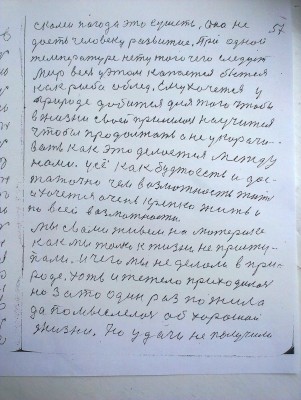 57
с вами погода это сушеть. Оно не
дасть человеку развитие. При одной
температуре нету того чего следует
Мир весь у этом капается бьется
как риба облед. Ему хочется у
природе добится для того чтобы
в жизни своей пришлось научится
чтобы продолжать а не укорачи-
вать как это делается между
нами. усё как будто есть и дос-
таточно чев возможность жить
и хочется очень крепко жить и
по всей возможности.
Мы с вами живем на матераке
как мы только к жизни не присту-
пали. и чего мы не делали в при-
роде. Хоть и тежело приходилося
но за то один раз пожила
да помыслела об хорошой
жизни. Но удачи не получили